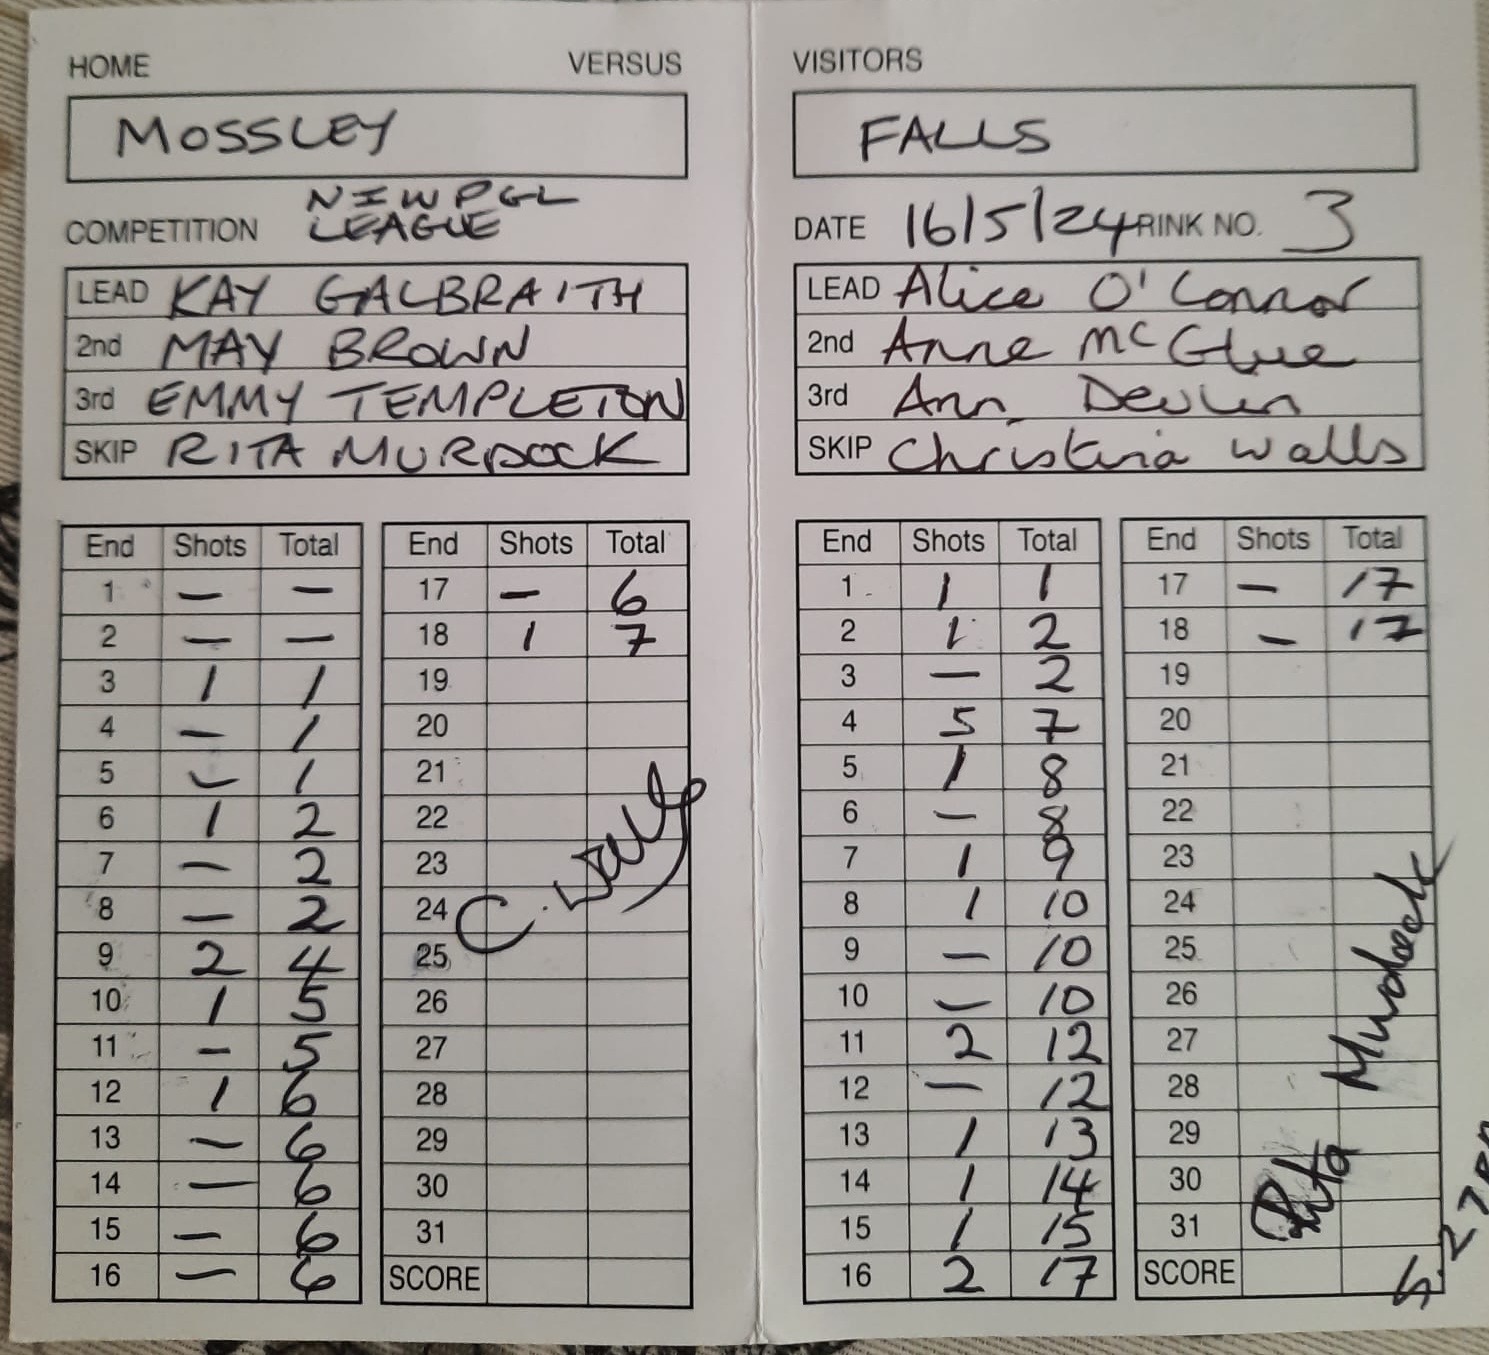 HOME VERSUS
MOSSLEY
COMPETITION NIWPGL
LEAGUE
LEAD KAY GALBRAITH
2nd MAY BROWN
3rd EMMY TEMPLETON
SKIP RITA MURDOCK
End Shots Total
1 — —
2 — —
3 1 1
4 — 1
5 — 1
6 1 2
7 — 2
8 — 2
9 2 4
10 1 5
11 — 5
12 1 6
13 — 6
14 — 6
15 — 6
16 — 6
End Shots Total
17 — 6
18 1 7
19
20
21
22
23
24
25
26
27
28
29
30
31
SCORE
C. Walls
VISITORS
FALLS
DATE 16/5/24 RINK NO. 3
LEAD Alice O'Connor
2nd Anne McGlue
3rd Ann Devlin
SKIP Christina Walls
End Shots Total
1 1 1
2 1 2
3 — 2
4 5 7
5 1 8
6 — 8
7 1 9
8 1 10
9 — 10
10 — 10
11 2 12
12 — 12
13 1 13
14 1 14
15 1 15
16 2 17
End Shots Total
17 — 17
18 — 17
19
20
21
22
23
24
25
26
27
28
29
30
31
SCORE
Rita Murdock